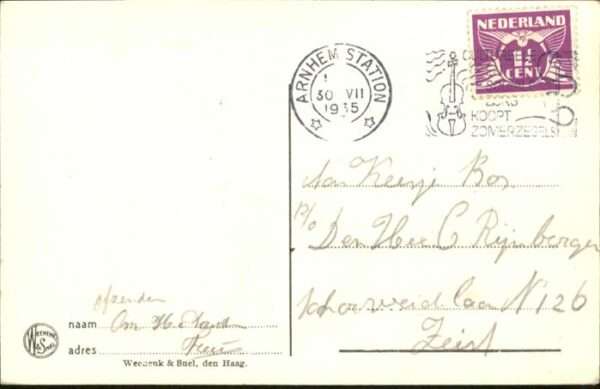 NEDERLAND
1½
CENT
ARNHEM STATION
30 VII
1935
KOOPT
ZOMERZEGELS
Aan Keesje Bos
p/o Den Heer C Rijnberger
N 126
Zeist
afzender
naam Om H.
adres
WEENENK & SNEL
Weenenk & Snel, den Haag.